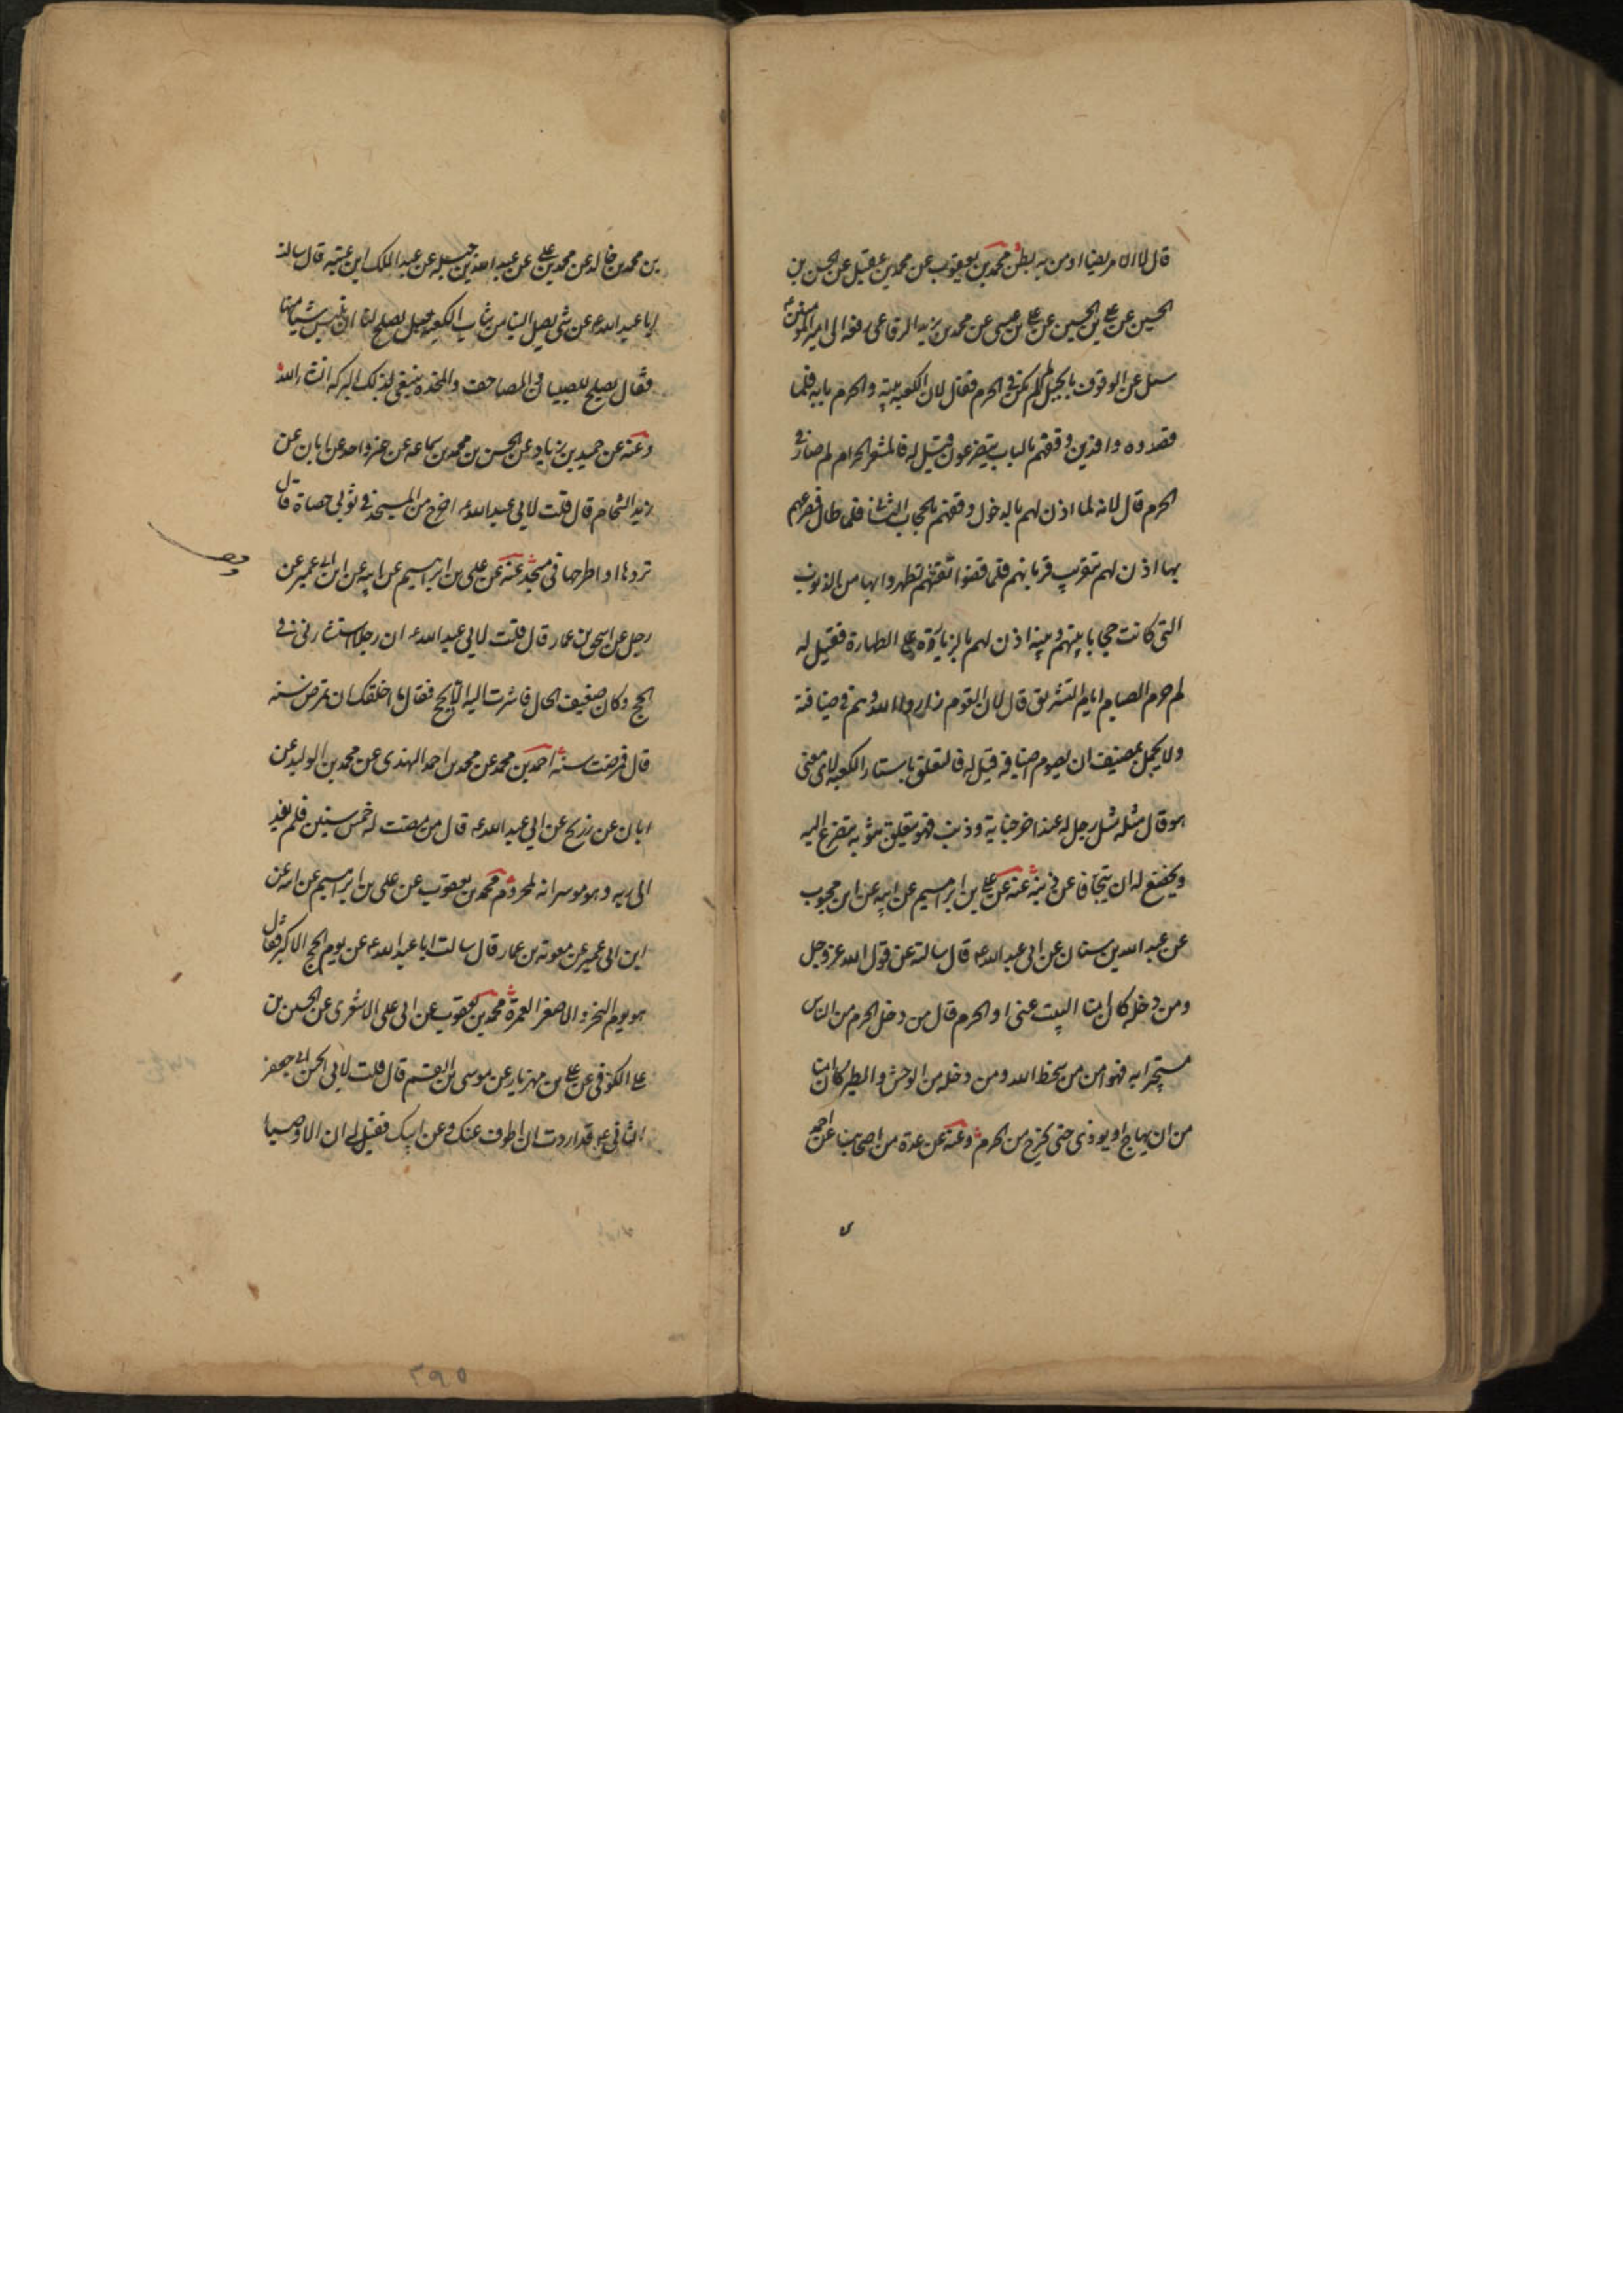 قال لا الا مريضا او من به بطن محمد بن يعقوب عن محمد بن عقيل عن الحسن بن
الحسين عن علي بن الحسين عن علي بن عيسى عن محمد بن يزيد الرفاعي رفعه الى امير المومنين ع
سئل عن الوقوف بالجبل لم لم يكن في الحرم فقال لان الكعبة بيته والحرم بابه فلما
قصدوه وافدين وقفهم بالباب يتضرعون قيل له فالمشعر الحرام لم صار في
الحرم قال لانه لما اذن لهم بالدخول وقفهم بالحجاب الثاني فلما طال تضرعهم
بها اذن لهم بتقريب قربانهم فلما قضوا تفثهم تطهروا بها من الذنوب
التي كانت حجابا بينهم وبينه اذن لهم بالزيارة على الطهارة فقيل له
لم حرم الصيام ايام التشريق قال لان القوم زاروا الله وهم في ضيافته
ولا يجمل بمضيف ان يصوم اضيافه قيل له فالتعلق باستار الكعبة لاي معنى
هو قال مثله مثل رجل له عند اخر جناية وذنب فهو يتعلق بثوبه يتضرع اليه
ويخضع له ان يتجافا عن ذنبه عنه عن علي بن ابراهيم عن ابيه عن ابن محبوب
عن عبد الله بن سنان عن ابي عبد الله ع قال سالته عن قول الله عز وجل
ومن دخله كان امنا البيت عنى او الحرم قال من دخل الحرم من الناس
مستجيرا به فهو امن من سخط الله ومن دخله من الوحش والطير كان امنا
من ان يهاج او يوذى حتى يخرج من الحرم وعنه عن عدة من اصحابنا عن احمد
بن محمد بن خالد عن محمد بن علي عن عبد الله بن جبله عن عبد الملك ابن عتبه قال سالت
ابا عبد الله ع عن شي يصل الينا من ثياب الكعبه هل يصلح لنا ان نلبس شيا منها
فقال يصلح للصبيان والمصاحف والمخده يبتغى لذلك البركه انشاء الله
وعنه عن حميد بن زياد عن الحسن بن محمد بن سماعه عن غير واحد عن ابان عن
زيد الشحام قال قلت لابي عبد الله ع اخرج من المسجد في ثوبي حصاة قال
تردها او اطرحها في مسجد عنه عن علي بن ابراهيم عن ابيه عن ابن ابي عمير عن
رجل عن اسحق بن عمار قال قلت لابي عبد الله ع ان رجلا استشارني في
الحج وكان ضعيف الحال فاشرت اليه الا يحج فقال ما اخلقك ان تمرض سنه
قال فمرضت سنة احمد بن محمد عن محمد بن احمد النهدى عن محمد بن الوليد عن
ابان عن ذريح عن ابي عبد الله ع قال من مضت له خمس سنين فلم يفد
الى ربه وهو موسر انه لمحروم محمد بن يعقوب عن علي بن ابراهيم عن ابيه عن
ابن ابي عمير عن معوية بن عمار قال سالت ابا عبد الله ع عن يوم الحج الاكبر فقال
هو يوم النحر والاصغر العمرة محمد بن يعقوب عن ابي علي الاشعري عن الحسن بن
علي الكوفي عن علي بن مهزيار عن موسى بن القسم قال قلت لابي جعفر
الثاني ع قد اردت ان اطوف عنك وعن ابيك فقيل لي ان الاوصيا
٢٩٥